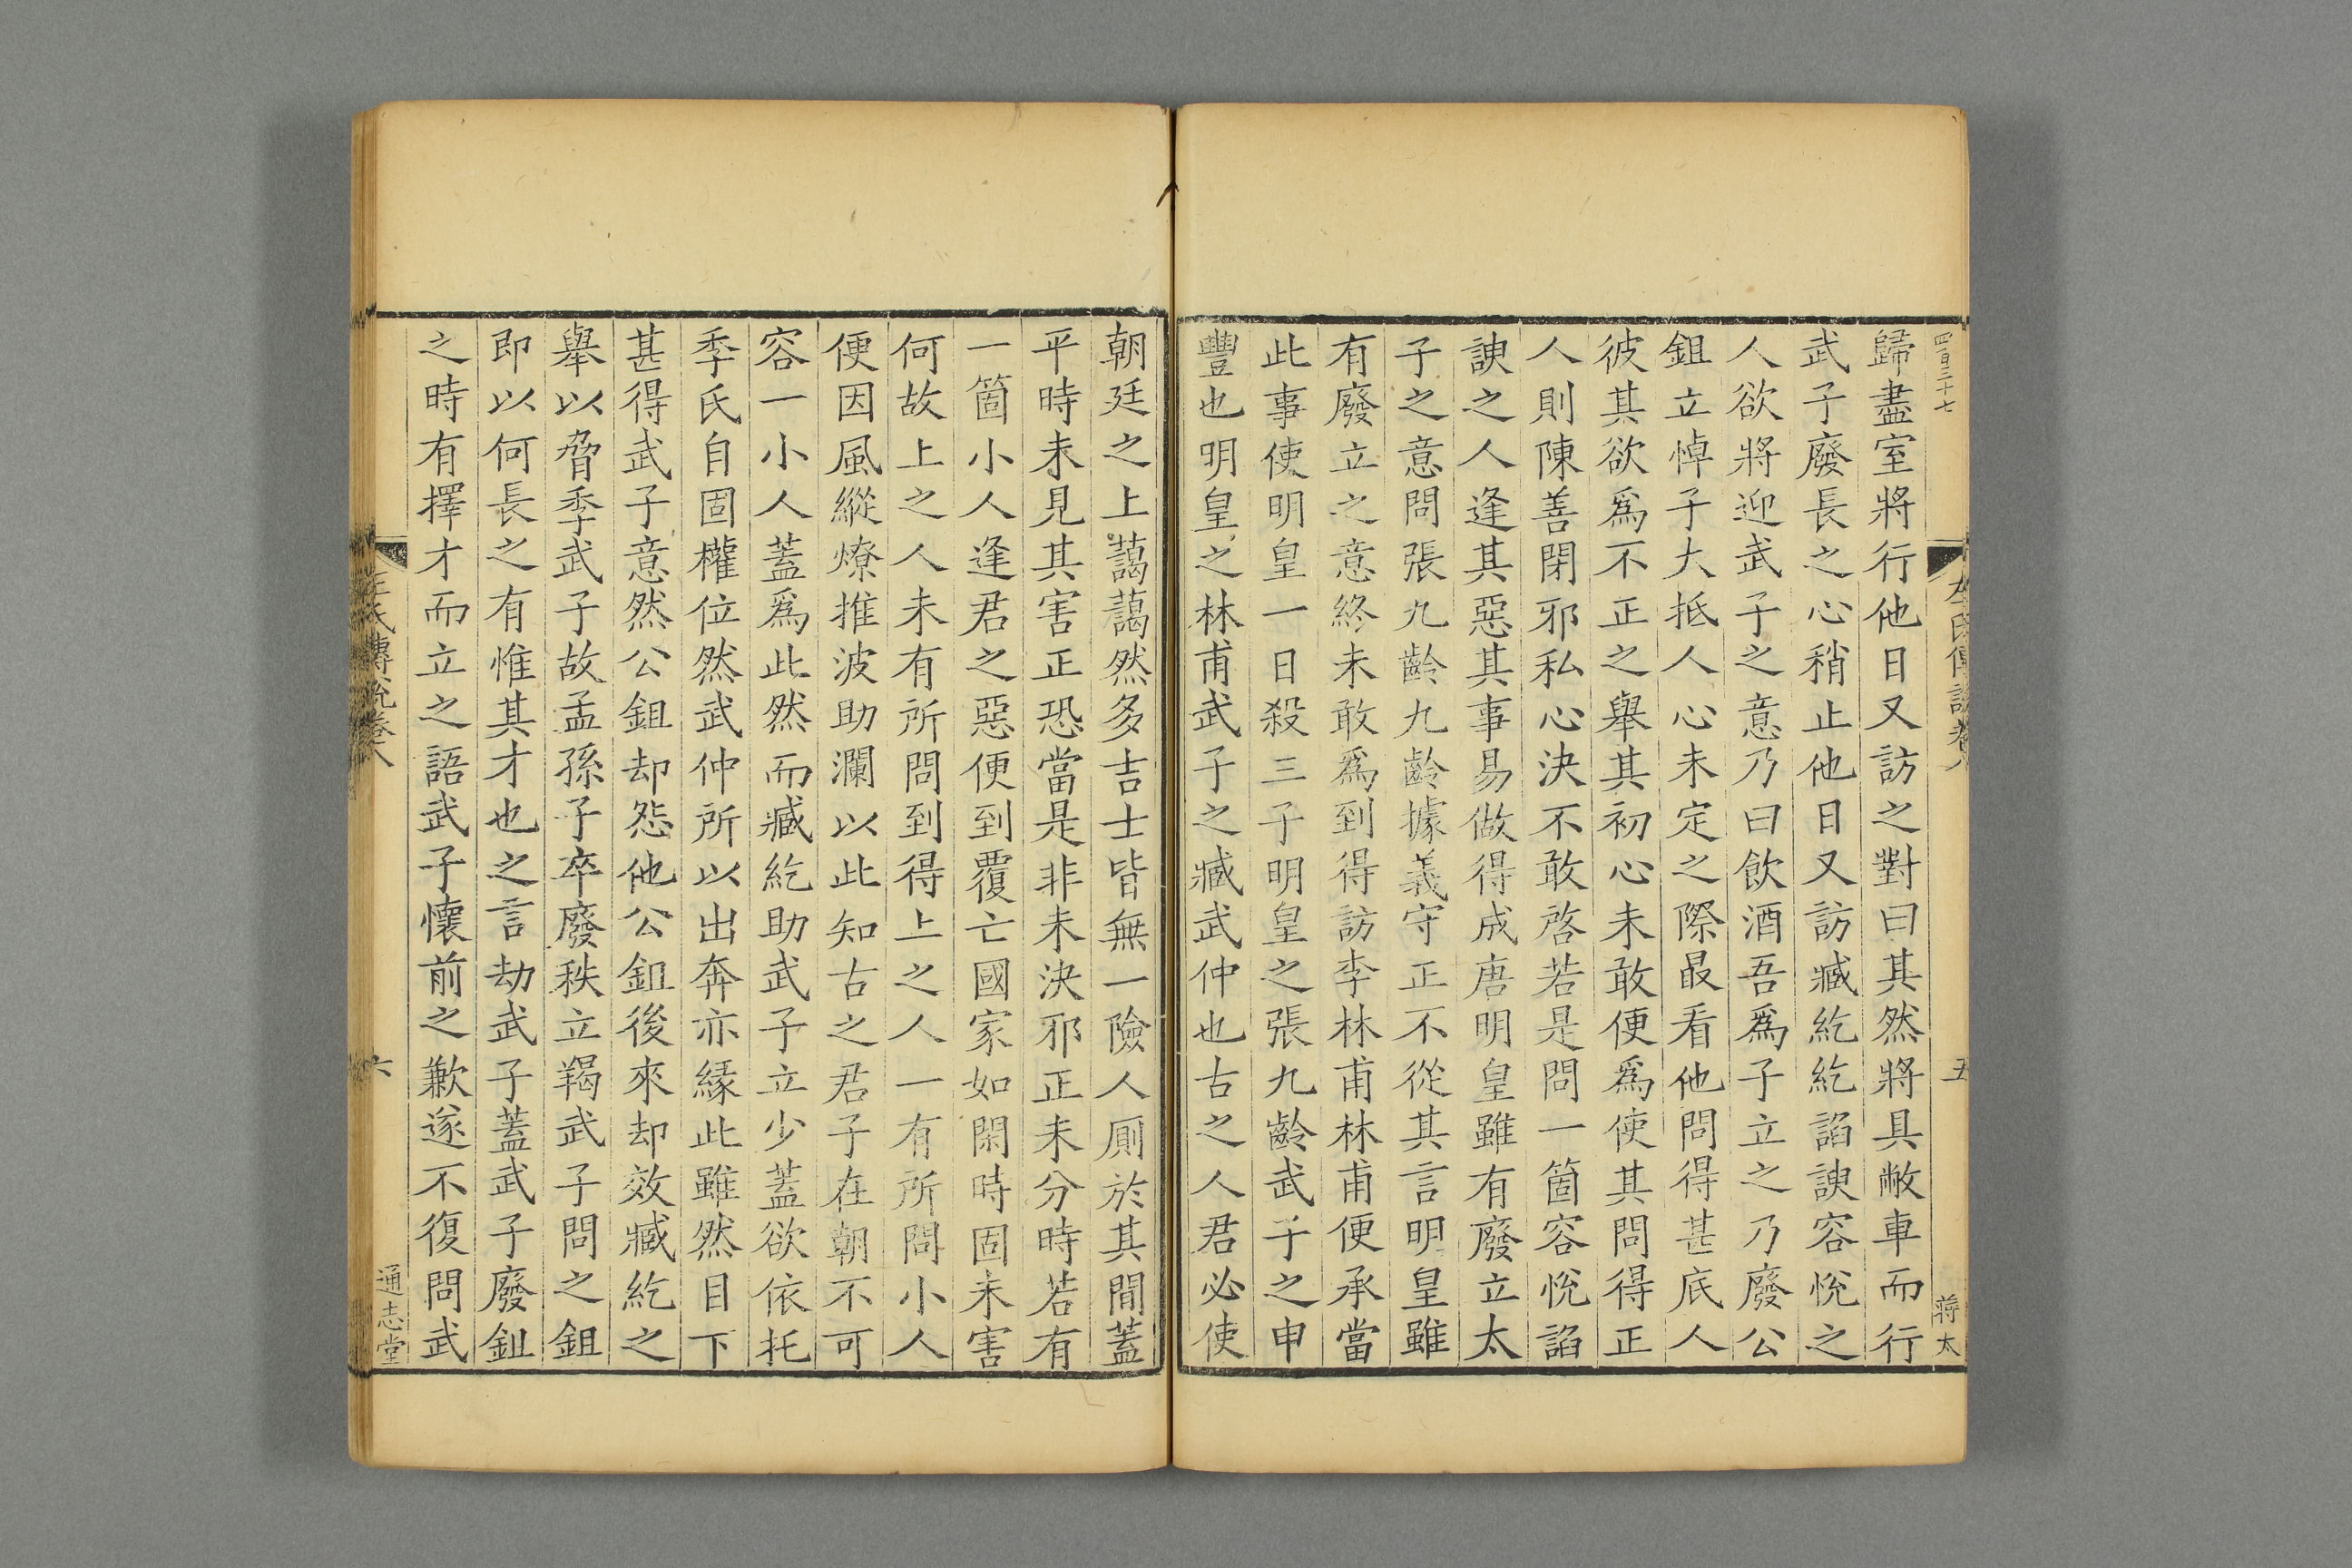 四百三十七
左氏傳說卷八
五
蔣太
歸盡室將行他日又訪之對曰其然將具敝車而行
武子廢長之心稍止他日又訪臧紇紇諂諛容悅之
人欲將迎武子之意乃曰飲酒吾爲子立之乃廢公
鉏立悼子大抵人心未定之際最看他問得甚底人
彼其欲爲不正之舉其初心未敢便爲使其問得正
人則陳善閉邪私心決不敢啓若是問一箇容悅諂
諛之人逢其惡其事易做得成唐明皇雖有廢立太
子之意問張九齡九齡據義守正不從其言明皇雖
有廢立之意終未敢爲到得訪李林甫林甫便承當
此事使明皇一日殺三子明皇之張九齡武子之申
豐也明皇之林甫武子之臧武仲也古之人君必使
朝廷之上藹藹然多吉士皆無一險人厠於其間蓋
平時未見其害正恐當是非未決邪正未分時若有
一箇小人逢君之惡便到覆亡國家如閑時固未害
何故上之人未有所問到得上之人一有所問小人
便因風縱燎推波助瀾以此知古之君子在朝不可
容一小人蓋爲此然而臧紇助武子立少蓋欲依托
季氏自固權位然武仲所以出奔亦緣此雖然目下
甚得武子意然公鉏却怨他公鉏後來却效臧紇之
舉以脅季武子故孟孫子卒廢秩立羯武子問之鉏
即以何長之有惟其才也之言劫武子蓋武子廢鉏
之時有擇才而立之語武子懷前之歉遂不復問武
左氏傳說卷八
六
通志堂